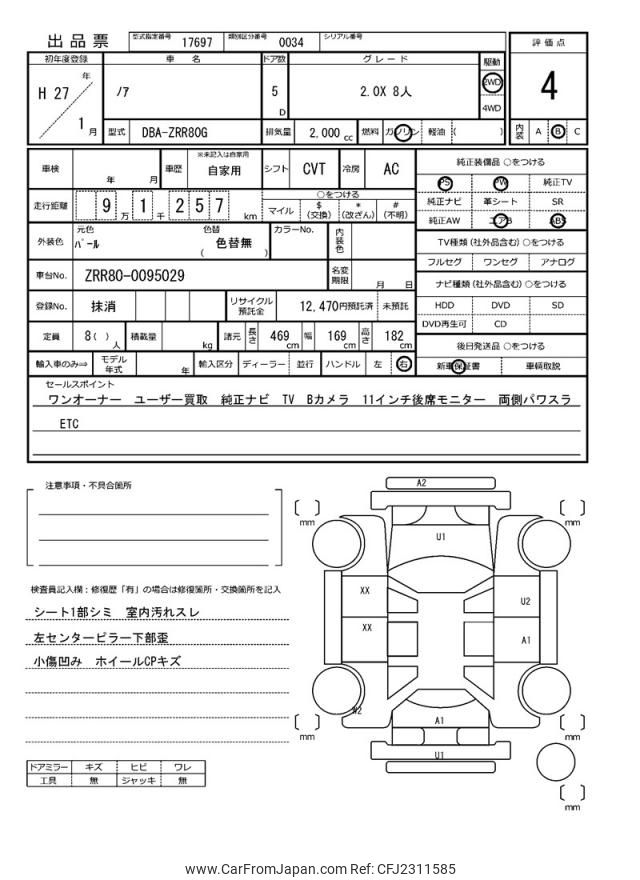 出品票
型式指定番号 17697 類別区分番号 0034 シリアル番号
評価点
4
初年度登録 車名 ドア数 グレード 駆動
H 27 年 1 月
ノア 5 D 2.0X 8人
2WD
4WD
型式 DBA-ZRR80G 排気量 2,000 cc 燃料 ガソリン 軽油 ( )
内装 A B C
車検 年 月 車歴 ※未記入は自家用 自家用 シフト CVT 冷房 AC
走行距離 9 万 1 千 2 5 7 km
○をつける
マイル $(交換) *(改ざん) #(不明)
外装色 元色 パール 色替 色替無 ( ) カラーNo. 内装色
車台No. ZRR80-0095029 名変期限 月 日
登録No. 抹消 リサイクル預託金 12,470円預託済 未預託
定員 8( )人 積載量 kg 諸元 長さ 469 cm 幅 169 cm 高さ 182 cm
輸入車のみ⇒ モデル年式 年 輸入区分 ディーラー 並行 ハンドル 左 右
純正装備品 ○をつける
PS PW 純正TV
純正ナビ 革シート SR
純正AW エアB ABS
TV種類 (社外品含む) ○をつける
フルセグ ワンセグ アナログ
ナビ種類 (社外品含む) ○をつける
HDD DVD SD
DVD再生可 CD
後日発送品 ○をつける
新車保証書 車輌取説
セールスポイント
ワンオーナー ユーザー買取 純正ナビ TV Bカメラ 11インチ後席モニター 両側パワスラ
ETC
注意事項・不具合箇所
検査員記入欄：修復歴「有」の場合は修復箇所・交換箇所を記入
シート1部シミ 室内汚れスレ
左センターピラー下部歪
小傷凹み ホイールCPキズ
ドアミラー キズ ヒビ ワレ
工具 無 ジャッキ 無
A2
mm mm
U1
XX U2
XX A1
W2
A1
mm mm
U1
mm
www.CarFromJapan.com Ref: CFJ2311585